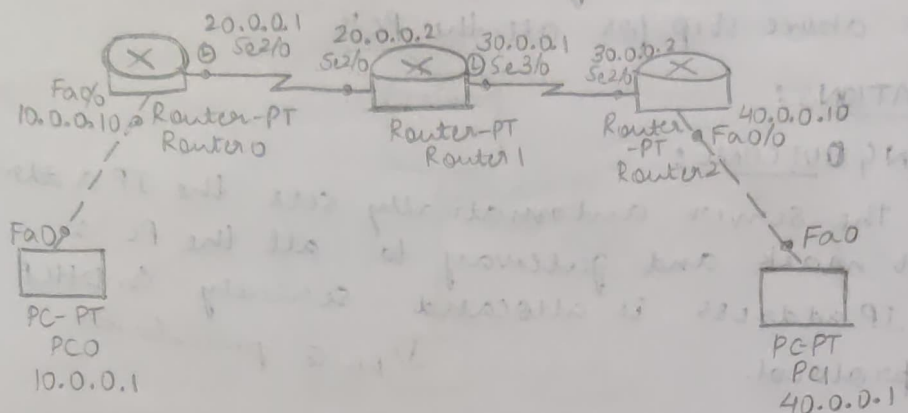 20.0.0.1
Se2/0
20.0.0.2
Se2/0
30.0.0.1
Se3/0
30.0.0.2
Se2/0
Fa0/0
10.0.0.10
Router-PT
Router0
Router-PT
Router1
Router
-PT
Router2
40.0.0.10
Fa0/0
Fa0
PC-PT
PC0
10.0.0.1
Fa0
PC-PT
PC1
40.0.0.1